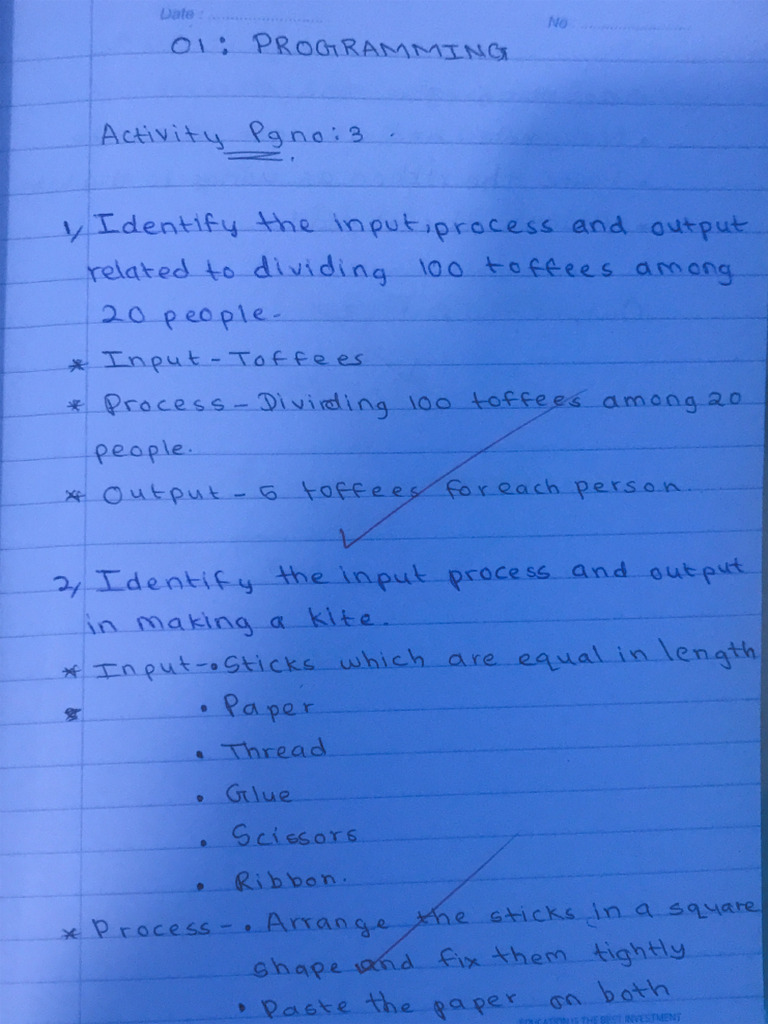 Date : ........................ No ........................
01: PROGRAMMING
Activity Pg no: 3 .
1, Identify the input, process and output
related to dividing 100 toffees among
20 people.
* Input - Toffees
* Process - Dividing 100 toffees among 20
people.
* Output - 5 toffees for each person.
2, Identify the input process and output
in making a kite.
* Input - • Sticks which are equal in length
• Paper
• Thread
• Glue
• Scissors
• Ribbon.
* Process - • Arrange the sticks in a square
shape and fix them tightly
• Paste the paper on both
EDUCATION IS THE BEST INVESTMENT